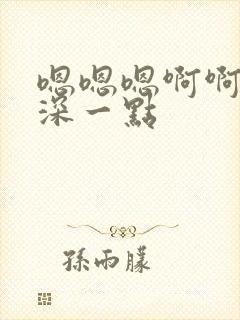 嗯嗯嗯啊啊
深一點
孫雨朦